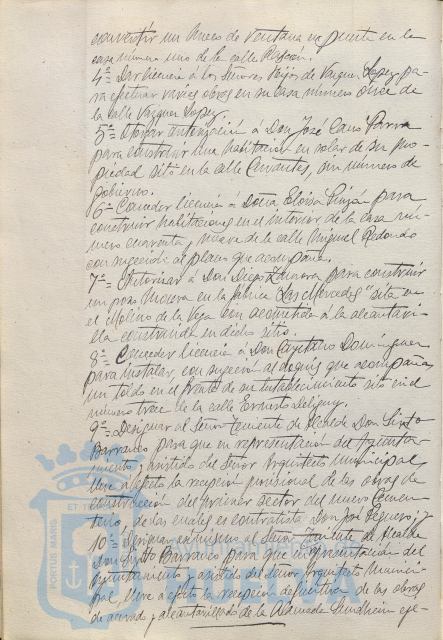 convertir un hueco de ventana en puerta en la
casa número uno de la calle Rascón.
4º= Dar licencia á los Señores Hijos de Vazquez Lopez pa-
ra efectuar varias obras en su casa número once de
la calle Vazquez Lopez.
5º= Otorgar autorización á Don José Cano Parra
para construir una habitación en solar de su pro-
piedad sito en la calle Cervantes, sin número de
gobierno.
6º= Conceder licencia á Doña Eloísa para
construir habitaciones en el interior de la casa nú-
mero cuarenta y nueve de la calle Miguel Redondo
con sujeción al plano que acompaña.
7º= Autorizar á Don Diego Zamora para construir
un pozo Moura en la fábrica "Las Mercedes" sita en
el Molino de la Vega con acometida á la alcantari-
lla construida en dicho sitio.
8º= Conceder licencia á Don Cayetano Domínguez
para instalar, con sujeción al diseño que acompaña,
un toldo en el frente de su establecimiento sito en el
número trece de la calle Ernesto Deligny.
9º= Designar al Señor Teniente de Alcalde Don Sixto
Barranco para que en representación del Ayunta-
miento y asistido del Señor Arquitecto Municipal,
lleve a efecto la recepción provisional de las obras de
construcción del primer sector del nuevo Cemen-
terio, de las cuales es contratista Don José Seguero; y
10º= Designar asimismo al Señor Teniente de Alcalde
Don Sixto Barranco para que en representación del
Ayuntamiento y asistido del Señor Arquitecto Munici-
pal, lleve a efecto la recepción definitiva de las obras
de acerado y alcantarillado de la Alameda Sundheim eje-
PORTUS MARIS ET T